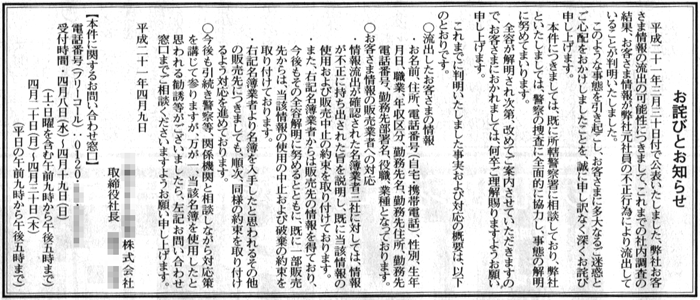 お詫びとお知らせ
平成二十一年三月三十日付で公表いたしました、弊社お客
さま情報の流出の可能性につきまして、これまでの社内調査の
結果、お客さま情報が弊社元社員の不正行為により流出して
いることが判明いたしました。
このような事態を引き起こし、お客さまに多大なるご迷惑と
ご心配をおかけしましたことを、誠に申し訳なく深くお詫び
申し上げます。
本件につきましては、既に所轄警察署に相談しており、弊社
といたしましては、警察の捜査に全面的に協力し、事態の解明
に努めてまいります。
全容が解明され次第、改めてご案内させていただきますの
で、お客さまにおかれましては、何卒ご理解賜りますようお願い
申し上げます。
これまでに判明いたしました事実および対応の概要は、以下
のとおりです。
○流出したお客さまの情報
・お名前、住所、電話番号(自宅・携帯電話)、性別、生年
月日、職業、年収区分、勤務先名、勤務先住所、勤務先
電話番号、勤務先部署名、役職、業種となっております。
○お客さま情報の販売業者への対応
・情報流出が確認された名簿業者三社に対しては、情報
が不正に持ち出された旨を説明し、既に当該情報の
使用および販売中止の約束を取り付けております。
・また、右記名簿業者からは販売先の情報を得ており、
今後もその全容解明に努めるとともに、既に一部販売
先からは、当該情報の使用の中止および破棄の約束を
取り付けております。
・右記名簿業者より名簿を入手したと思われるその他
の販売先につきましても、順次、同様の約束を取り付け
るよう対応を進めております。
○今後も引続き警察等、関係機関と相談しながら対応策
を講じて参りますが、万が一、当該名簿を使用したと
思われる勧誘等がございましたら、左記お問い合わせ
窓口までご相談くださいますようお願い申し上げます。
平成二十一年四月九日
株式会社
取締役社長
【本件に関するお問い合わせ窓口】
電話番号(フリーコール)・・0120-
受付時間・四月八日(水)〜四月十九日(日)
(土・日曜を含む午前九時から午後五時まで)
四月二十日(月)〜四月三十日(木)
(平日の午前九時から午後五時まで)